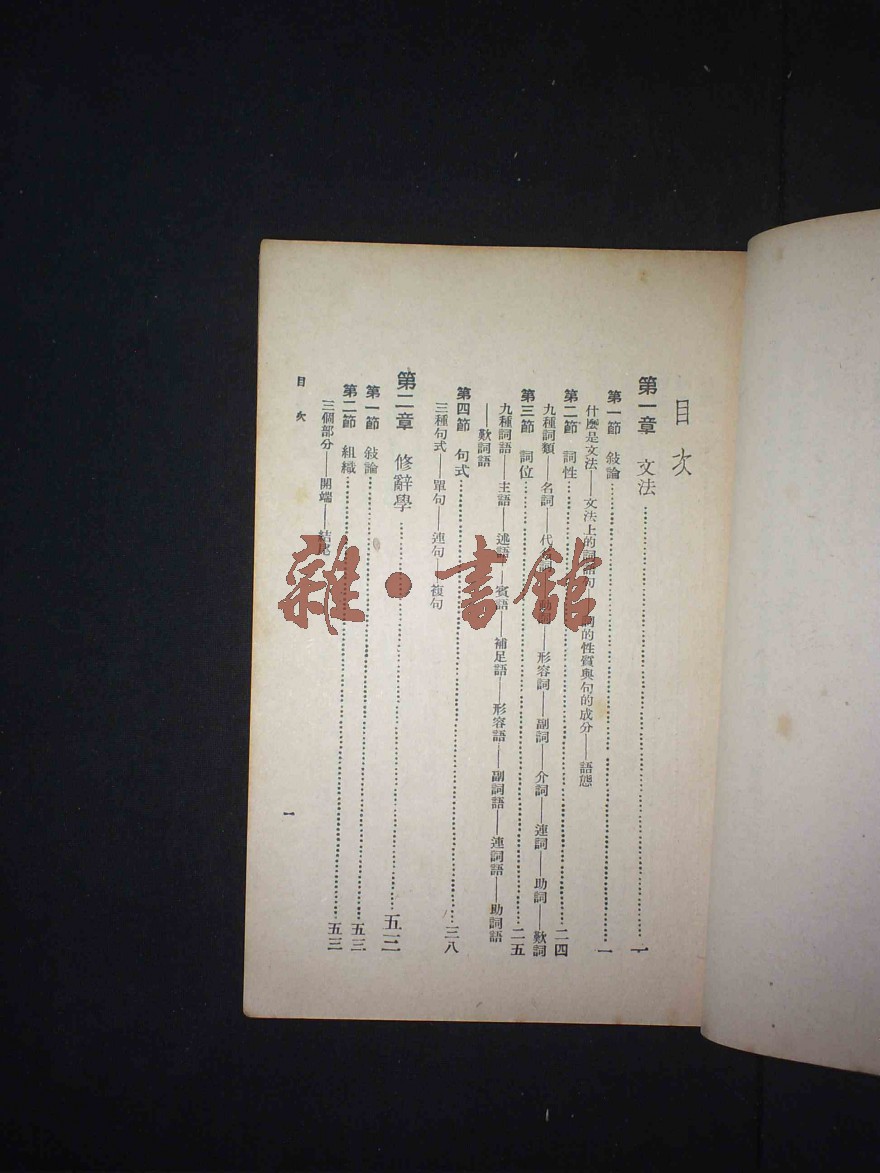 目次
第一章 文法……一
第一節 敍論……一
什麼是文法——文法上的詞語句——詞的性質與句的成分——語態
第二節 詞性……二四
九種詞類——名詞——代名詞——動詞——形容詞——副詞——介詞——連詞——助詞——歎詞
第三節 詞位……二五
九種詞語——主語——述語——賓語——補足語——形容語——副詞語——連詞語——助詞語
——歎詞語
第四節 句式……三八
三種句式——單句——連句——複句
第二章 修辭學……五三
第一節 敍論……五三
第二節 組織……五三
三個部分——開端——結尾
目次
一
雜·書館